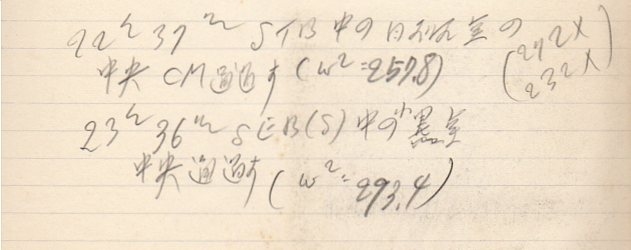 22h 37m STB中の白斑室の
中央 CM通過す (ω2=257.8)
(272X
232X)
23h 36m SEB(S)中の小黒点
中央通過す (ω2=293.4)